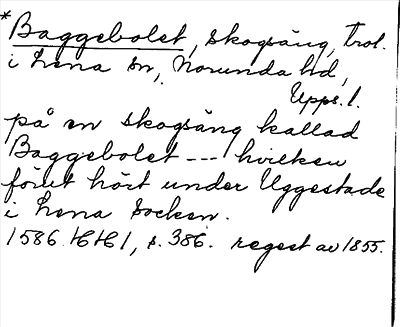 *Baggebolet, skogsäng, trol.
i Lena sn, Norunda hd,
Upps. l.
på en skogsäng kallad
Baggebolet --- hvilken
förut hört under Uggestade
i Lena socken.
1586 HH 1, s. 386. regest av 1855.